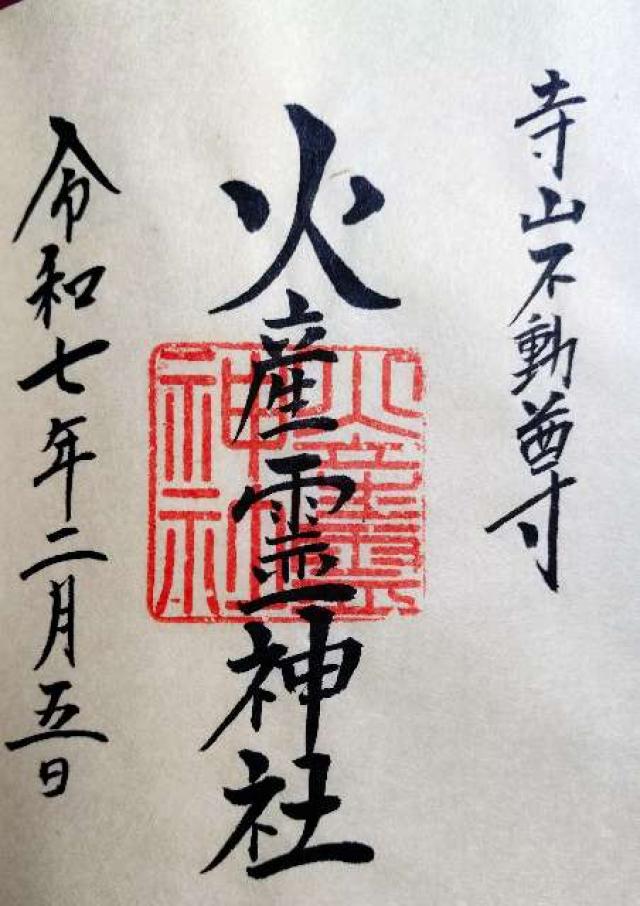 寺山不動尊
火産霊神社
火産霊神社
令和七年二月五日